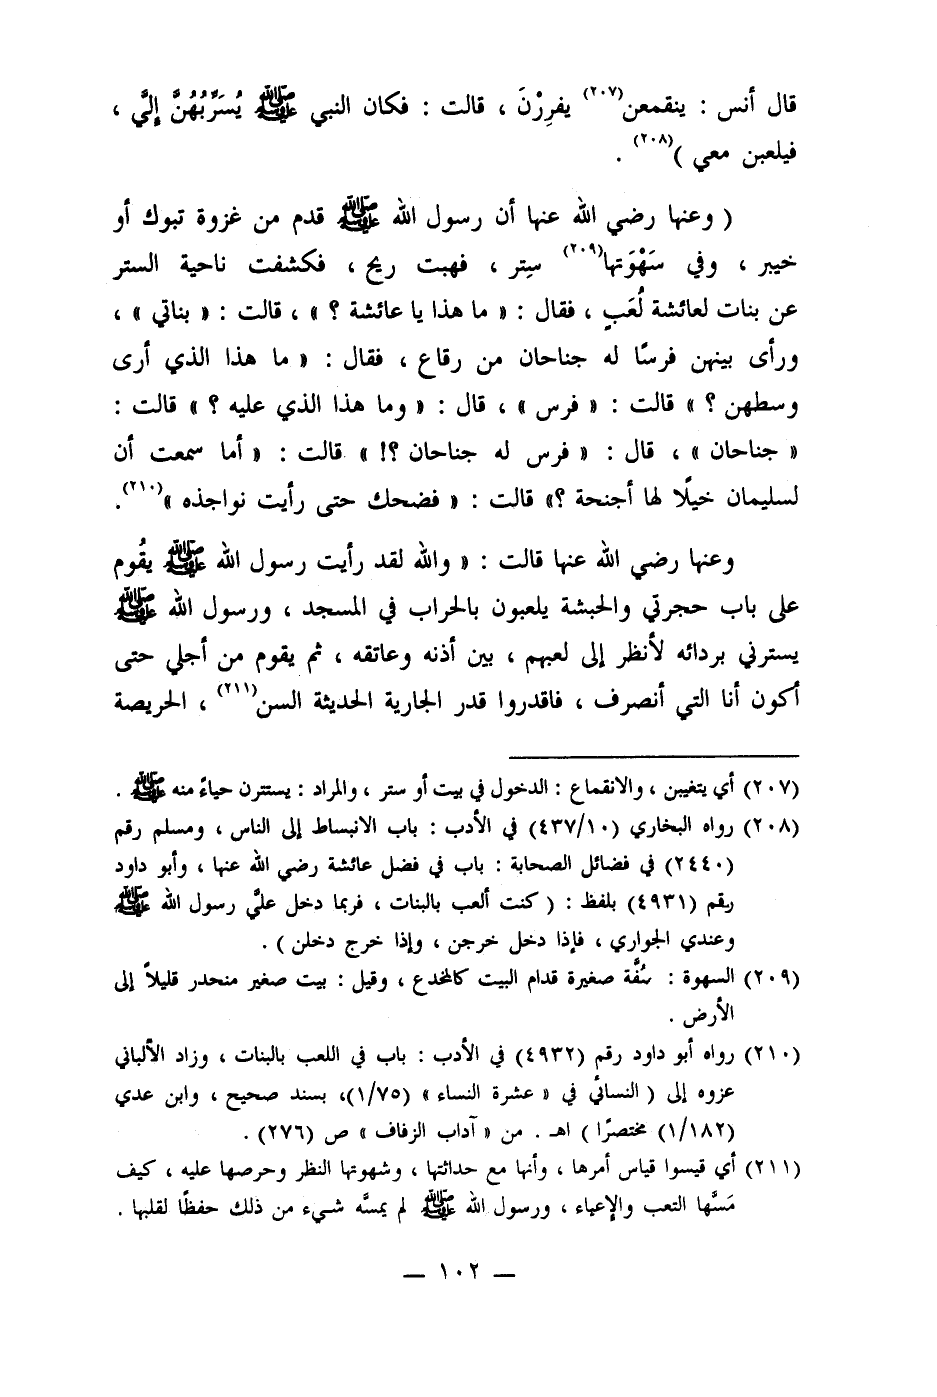 قال أنس : ينقمعن(٢٠٧) يفرِرْنَ ، قالت : فكان النبي ﷺ يُسَرِّبُهُنَّ إِليَّ ،
فيلعبن معي )(٢٠٨) .
( وعنها رضي الله عنها أن رسول الله ﷺ قدم من غزوة تبوك أو
خيبر ، وفي سَهْوَتها(٢٠٩) سِتر ، فهبت ريح ، فكشفت ناحية الستر
عن بنات لعائشة لُعَبٍ ، فقال : « ما هذا يا عائشة ؟ » ، قالت : « بناتي » ،
ورأى بينهن فرسًا له جناحان من رقاع ، فقال : « ما هذا الذي أرى
وسطهن ؟ » قالت : « فرس » ، قال : « وما هذا الذي عليه ؟ » قالت :
« جناحان » ، قال : « فرس له جناحان ؟! » قالت : « أما سمعت أن
لسليمان خيلًا لها أجنحة ؟» قالت : « فضحك حتى رأيت نواجذه »(٢١٠).
وعنها رضي الله عنها قالت : « والله لقد رأيت رسول الله ﷺ يقُوم
على باب حجرتي والحبشة يلعبون بالحراب في المسجد ، ورسول الله ﷺ
يسترني بردائه لأنظر إلى لعبهم ، بين أذنه وعاتقه ، ثم يقوم من أجلي حتى
أكون أنا التي أنصرف ، فاقدروا قدر الجارية الحديثة السن(٢١١) ، الحريصة
(٢٠٧) أي يتغيبن ، والانقماع : الدخول في بيت أو ستر ، والمراد : يستترن حياءً منه ﷺ .
(٢٠٨) رواه البخاري (٤٣٧/١٠) في الأدب : باب الانبساط إلى الناس ، ومسلم رقم
(٢٤٤٠) في فضائل الصحابة : باب في فضل عائشة رضي الله عنها ، وأبو داود
رقم (٤٩٣١) بلفظ : ( كنت ألعب بالبنات ، فربما دخل عليَّ رسول الله ﷺ
وعندي الجواري ، فإذا دخل خرجن ، وإذا خرج دخلن ) .
(٢٠٩) السهوة : صُفَّة صغيرة قدام البيت كالمخدع ، وقيل : بيت صغير منحدر قليلاً إلى
الأرض .
(٢١٠) رواه أبو داود رقم (٤٩٣٢) في الأدب : باب في اللعب بالبنات ، وزاد الألباني
عزوه إلى ( النسائي في « عشرة النساء » (١/٧٥)، بسند صحيح ، وابن عدي
(١/١٨٢) مختصرًا ) اهـ . من « آداب الزفاف » ص (٢٧٦) .
(٢١١) أي قيسوا قياس أمرها ، وأنها مع حداثتها ، وشهوتها النظر وحرصها عليه ، كيف
مَسَّها التعب والإعياء ، ورسول الله ﷺ لم يمسَّه شيء من ذلك حفظًا لقلبها .
— ١٠٢ —